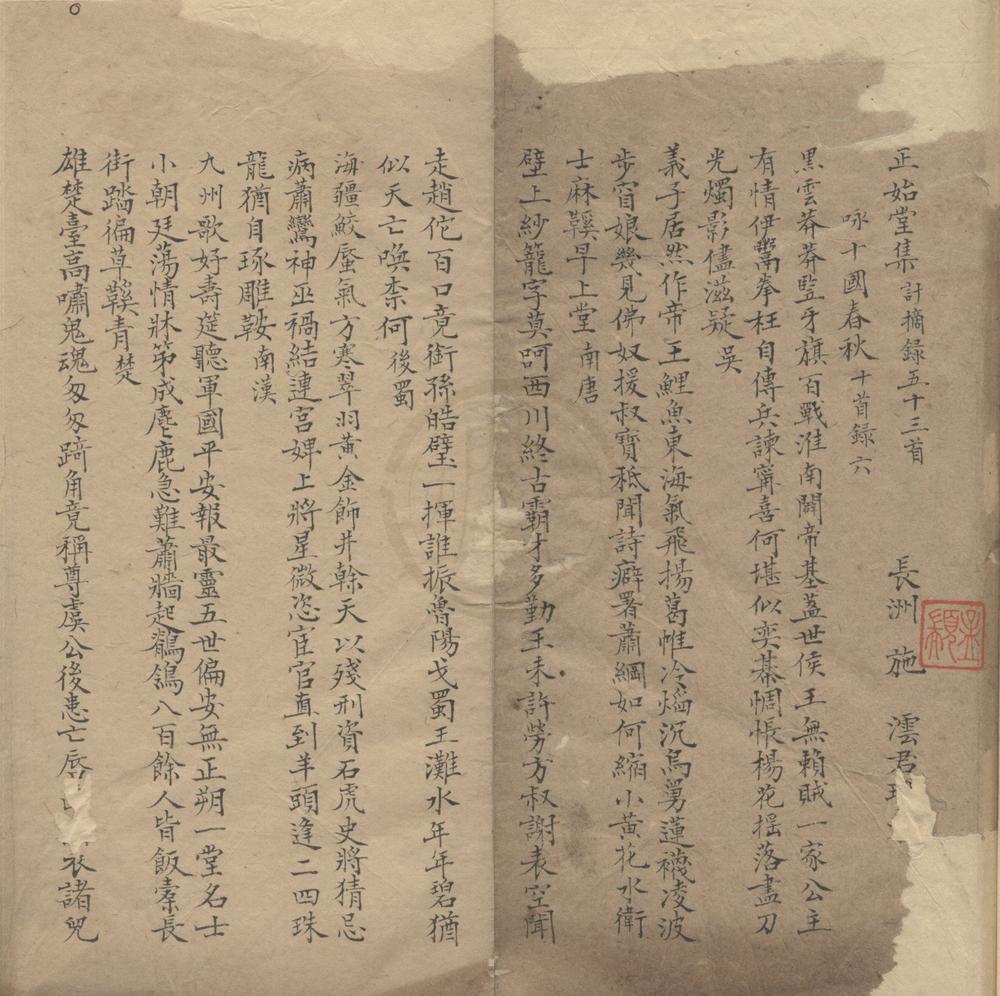 正始堂集 計摘録五十三首
長洲 施 澐君
咏十國春秋 十首録六
黑雲莽莽豎牙旗百戰淮南闢帝基蓋世侯王無賴賊一家公主
有情伊鬻拳枉自傳兵諫甯喜何堪似奕棊惆悵楊花揺落盡刀
光燭影儘滋疑 吳
義子居然作帝王鯉魚東海氣飛揚葛帷冷熖沉烏舅蓮襪凌波
步窅娘幾見佛奴援叔寶秪聞詩癖署蕭綱如何縮小黃花水衛
士麻鞵早上堂 南唐
壁上紗籠字莫呵西川終古霸才多勤王未許勞方叔謝表空聞
走趙佗百口竟銜孫皓璧一揮誰振魯陽戈蜀王灘水年年碧猶
似天亡喚柰何 後蜀
海疆鮫蜃氣方寒翠羽黃金飾井榦天以殘刑資石虎史將猜忌
病蕭鸞神巫禍結連宮婢上將星微恣宦官直到羊頭逢二四珠
龍猶自琢雕鞍 南漢
九州歌好壽筵聽軍國平安報最靈五世偏安無正朔一堂名士
小朝廷蕩情牀第成麀鹿急難蕭牆起鶺鴒八百餘人皆飯橐長
街踏徧草鞵青 楚
雄楚臺高嘯鬼魂匆匆踦角竟稱尊虞公後患亡唇 衣諸兒